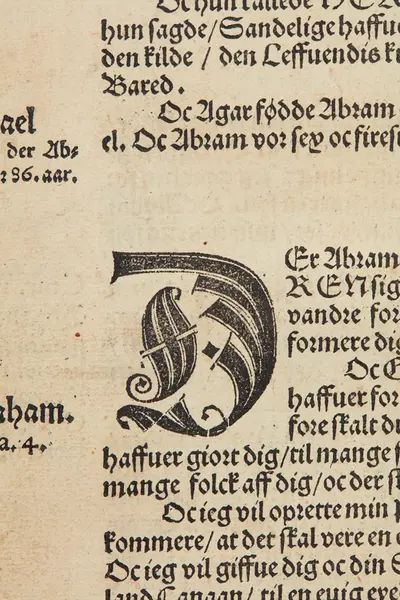 Oc hun kallede HER
hun sagde/Sandelige haffue
den kilde / den Leffuendis
Bared.
Oc Agar fødde Abram
el. Oc Abram vor sex oc fires
ael
der Ab⸗
86. aar.
DEr Abram
REN sig
vandre for
formere dig
Oc
haffuer for
fore skalt du
haffuer giort dig/til mange
mange folck aff dig/oc der sk
Oc ieg vil oprette min
kommere/ at det skal vere en
Oc ieg vil giffue dig oc din S
land Canaan/ til en euig eye
aham.
a. 4.